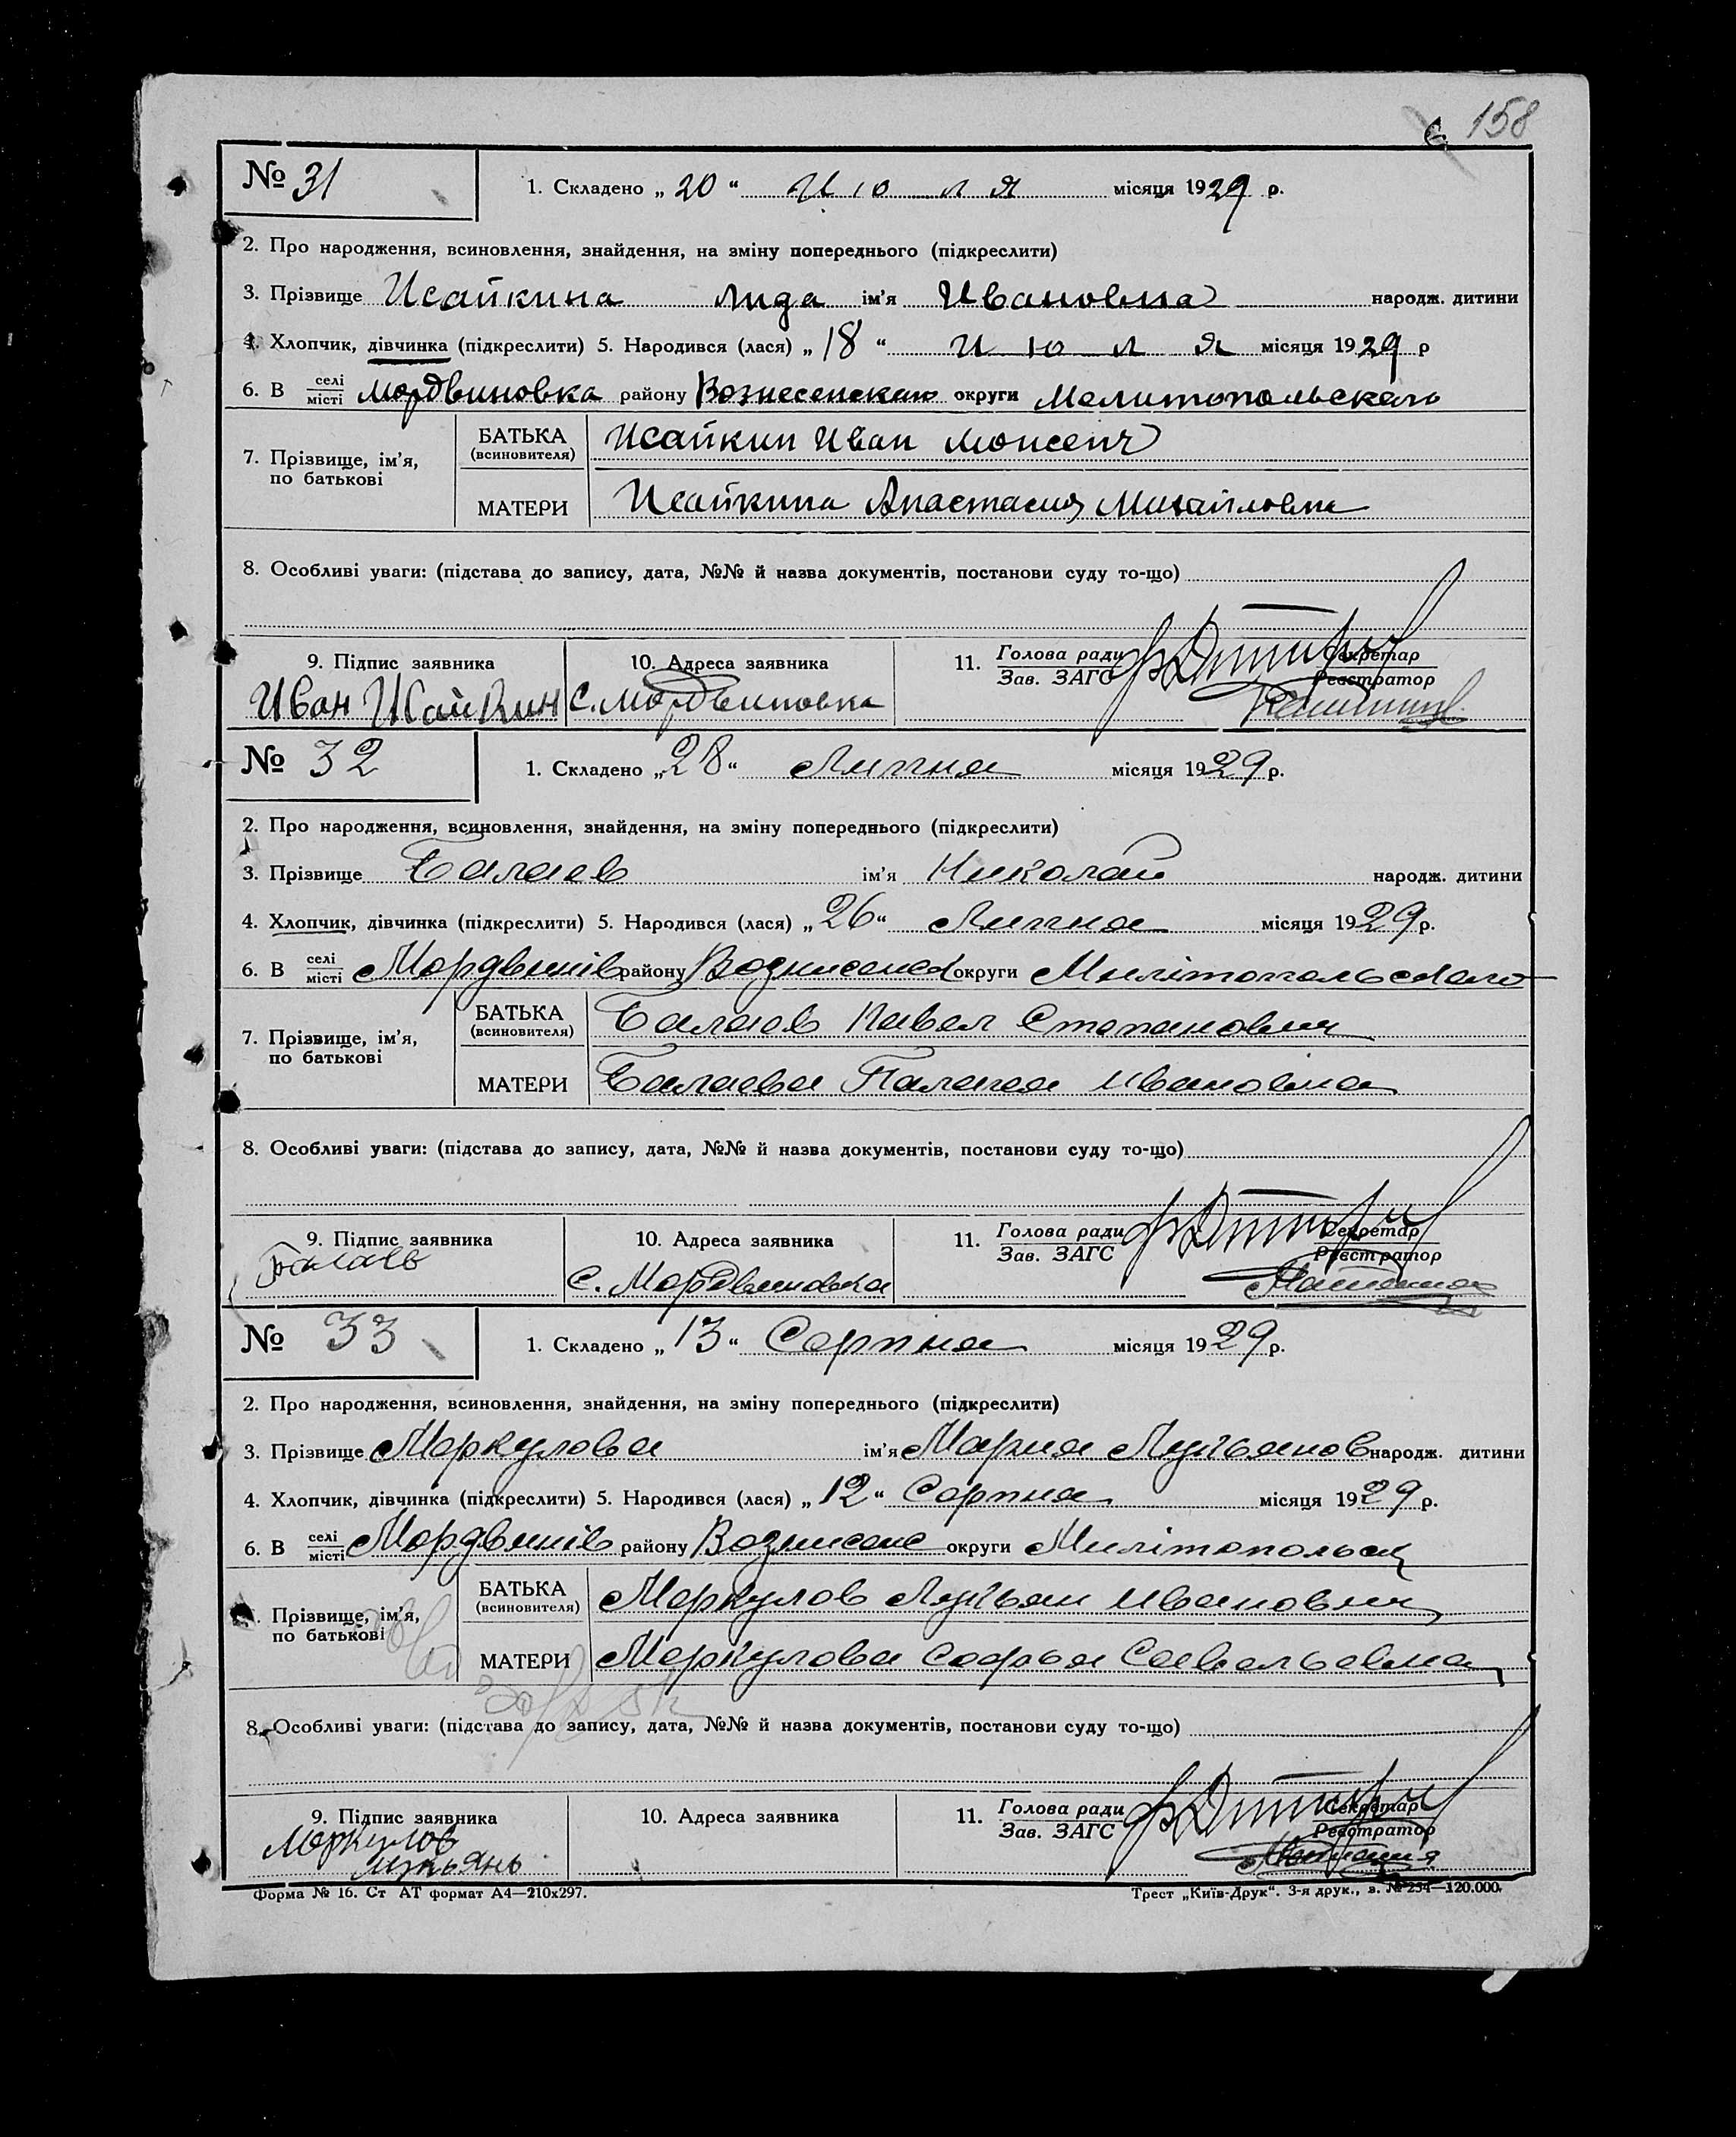 158
№ 31
1. Складено „ 20 “ Июля місяця 1929 р.
2. Про народження, всиновлення, знайдення, на зміну попереднього (підкреслити)
3. Прізвище Исайкина Лида ім'я Ивановна народж. дитини
4. Хлопчик, дівчинка (підкреслити) 5. Народився (лася) „ 18 “ Июля місяця 1929 р
6. В селі місті Мордвиновка району Вознесенскаго округи Мелитопольскаго
7. Прізвище, ім'я, по батькові
БАТЬКА (всиновителя) Исайкин Иван Моисеич
МАТЕРИ Исайкина Анастасия Михайловна
8. Особливі уваги: (підстава до запису, дата, №№ й назва документів, постанови суду то-що)
9. Підпис заявника 10. Адреса заявника 11. Голова ради Зав. ЗАГС Секретар Реєстратор
Иван Исайкин С. Мордвиновка
№ 32
1. Складено „ 28 “ Липня місяця 1929 р.
2. Про народження, всиновлення, знайдення, на зміну попереднього (підкреслити)
3. Прізвище Балаев ім'я Николай народж. дитини
4. Хлопчик, дівчинка (підкреслити) 5. Народився (лася) „ 26 “ Липня місяця 1929 р.
6. В селі місті Мордвинів району округи Милітопольскаго
7. Прізвище, ім'я, по батькові
БАТЬКА (всиновителя) Балаев Павел Степанович
МАТЕРИ Балаева Палагея Ивановна
8. Особливі уваги: (підстава до запису, дата, №№ й назва документів, постанови суду то-що)
9. Підпис заявника 10. Адреса заявника 11. Голова ради Зав. ЗАГС Секретар Реєстратор
Балаев С. Мордвиновка
№ 33
1. Складено „ 13 “ Серпня місяця 1929 р.
2. Про народження, всиновлення, знайдення, на зміну попереднього (підкреслити)
3. Прізвище Меркулова ім'я Мария Лукьянов народж. дитини
4. Хлопчик, дівчинка (підкреслити) 5. Народився (лася) „ 12 “ Серпня місяця 1929 р.
6. В селі місті Мордвинів району Вознисенс округи Милітопольск
Прізвище, ім'я, по батькові
БАТЬКА (всиновителя) Меркулов Лукьян Иванович
МАТЕРИ Меркулова Софья Савельевна
8. Особливі уваги: (підстава до запису, дата, №№ й назва документів, постанови суду то-що)
9. Підпис заявника 10. Адреса заявника 11. Голова ради Зав. ЗАГС Секретар Реєстратор
Меркулов
Лукьянъ
Форма № 16. Ст АТ формат А4—210х297. Трест „Київ-Друк“. 3-я друк., з. № 254—120.000.